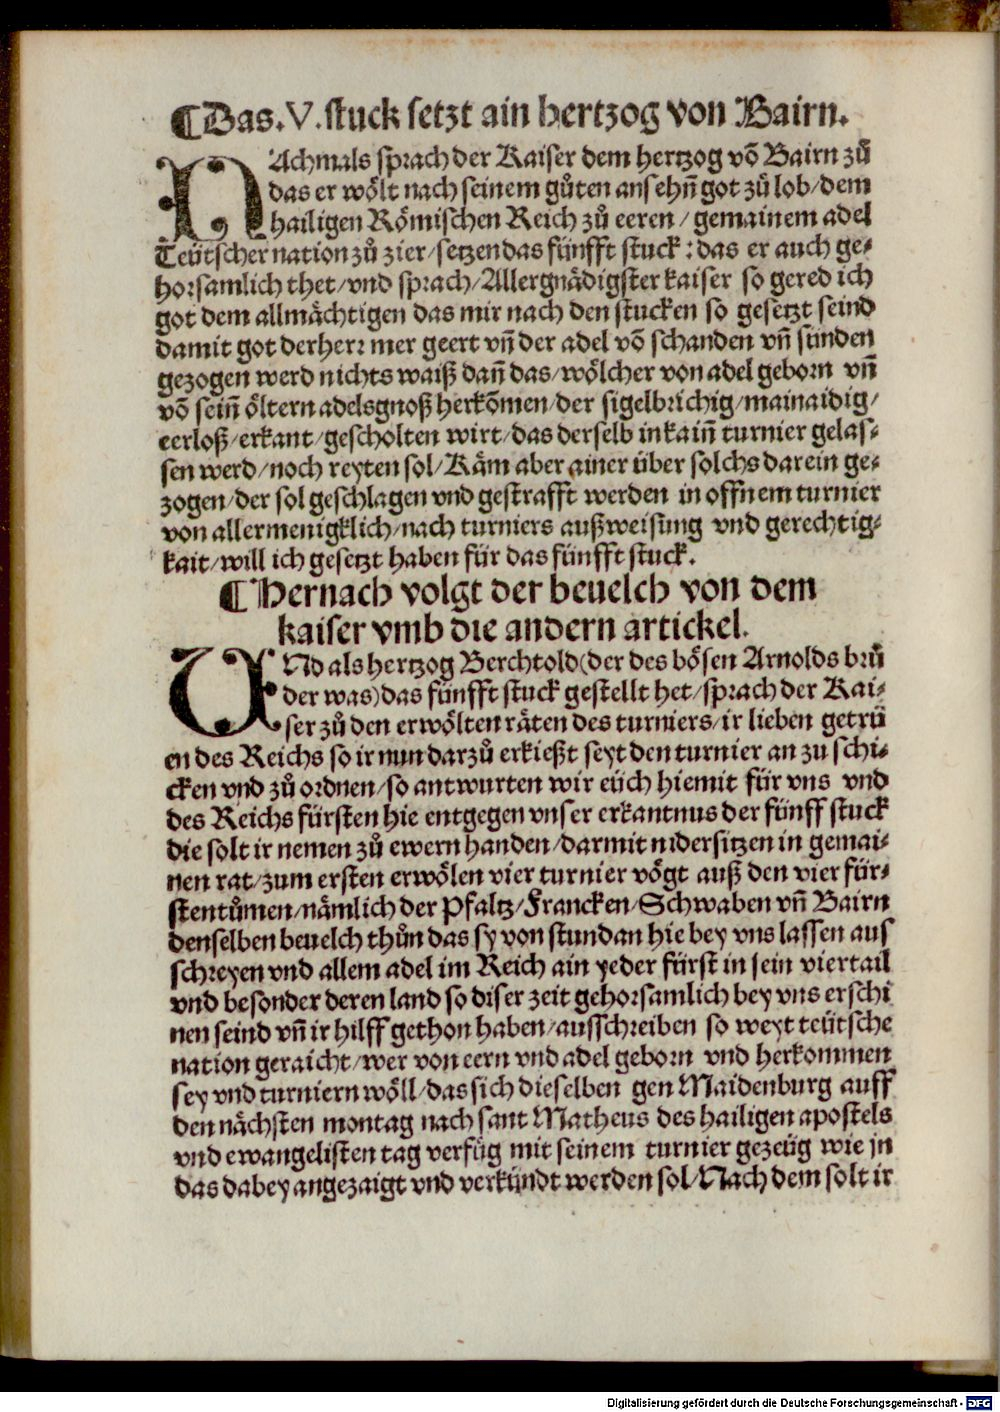 ¶Das.V.stuck setzt ain hertzog von Bairn.
NAchmals sprach der Kaiser dem hertzog võ Bairn zů
das er wölt nach seinem gůten ansehñ got zů lob/dem
hailigen Römischen Reich zů eeren/ gemainem adel
Teütscher nation zů zier/setzen das fünfft stuck: das er auch ge-
horsamlich thet/vnd sprach/Allergnädigster kaiser so gered ich
got dem allmächtigen das mir nach den stucken so gesetzt seind
damit got der herr mer geert vñ der adel võ schanden vñ sünden
gezogen werd nichts waiß dañ das/wölcher von adel geborn vñ
võ seiñ öltern adelsgnoß herkõmen/der sigelbrichig/mainaidig/
eerloß/erkant/gescholten wirt/das derselb in kaiñ turnier gelas-
sen werd/noch reyten sol/Käm aber ainer über solchs darein ge-
zogen/der sol geschlagen vnd gestrafft werden in offnem turnier
von allermenigklich/nach turniers außweisung vnd gerechtig-
kait/will ich gesetzt haben für das fünfft stuck.
¶Hernach volgt der beuelch von dem
kaiser vmb die andern artickel.
VNd als hertzog Berchtold(der des bösen Arnolds brů
der was)das fünfft stuck gestellt het/sprach der Kai-
ser zů den erwölten räten des turniers/ir lieben getrü
en des Reichs so ir nun darzů erkießt seyt den turnier an zu schi-
cken vnd zů ordnen/so antwurten wir eüch hiemit für vns vnd
des Reichs fürsten hie entgegen vnser erkantnus der fünff stuck
die solt ir nemen zů ewern handen/darmit nidersitzen in gemai-
nen rat/zum ersten erwölen vier turnier vögt auß den vier für-
stentůmen/nämlich der Pfaltz/Francken/Schwaben vñ Bairn
denselben beuelch thůn das sy von stundan hie bey vns lassen aus
schreyen vnd allem adel im Reich ain yeder fürst in sein viertail
vnd besonder deren land so diser zeit gehorsamlich bey vns erschi
nen seind vñ ir hilff gethon haben/ausschreiben so weyt teütsche
nation geraicht/wer von eern vnd adel geborn vnd herkommen
sey vnd turniern wöll/das sich dieselben gen Maidenburg auff
den nächsten montag nach sant Matheus des hailigen apostels
vnd ewangelisten tag verfüg mit seinem turnier gezeüg wie jn
das dabey angezaigt vnd verkündt werden sol/Nach dem solt ir
Digitalisierung gefördert durch die Deutsche Forschungsgemeinschaft - DFG